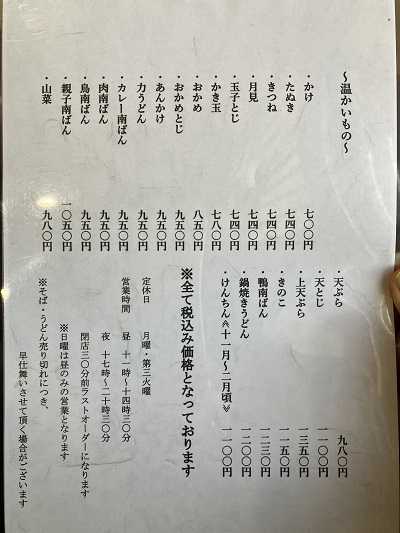 ～温かいもの～
・かけ 七〇〇円
・たぬき 七四〇円
・きつね 七四〇円
・月見 七四〇円
・玉子とじ 七四〇円
・かき玉 七八〇円
・おかめ 八五〇円
・おかめとじ 九五〇円
・あんかけ 九五〇円
・力うどん 九五〇円
・カレー南ばん 九五〇円
・肉南ばん 九五〇円
・鳥南ばん 九五〇円
・親子南ばん 一〇五〇円
・山菜 九八〇円
・天ぷら 九八〇円
・天とじ 一一〇〇円
・上天ぷら 一三五〇円
・きのこ 一一五〇円
・鴨南ばん 一二三〇円
・鍋焼きうどん 一二〇〇円
・けんちん≪十一月～二月頃≫ 一一〇〇円
※全て税込み価格となっております
定休日 月曜・第三火曜
営業時間 昼 十一時～十四時三〇分
夜 十七時～二十時三〇分
閉店三〇分前ラストオーダーになります
※日曜は昼のみの営業となります
※そば・うどん売り切れにつき、
早仕舞いさせて頂く場合がございます